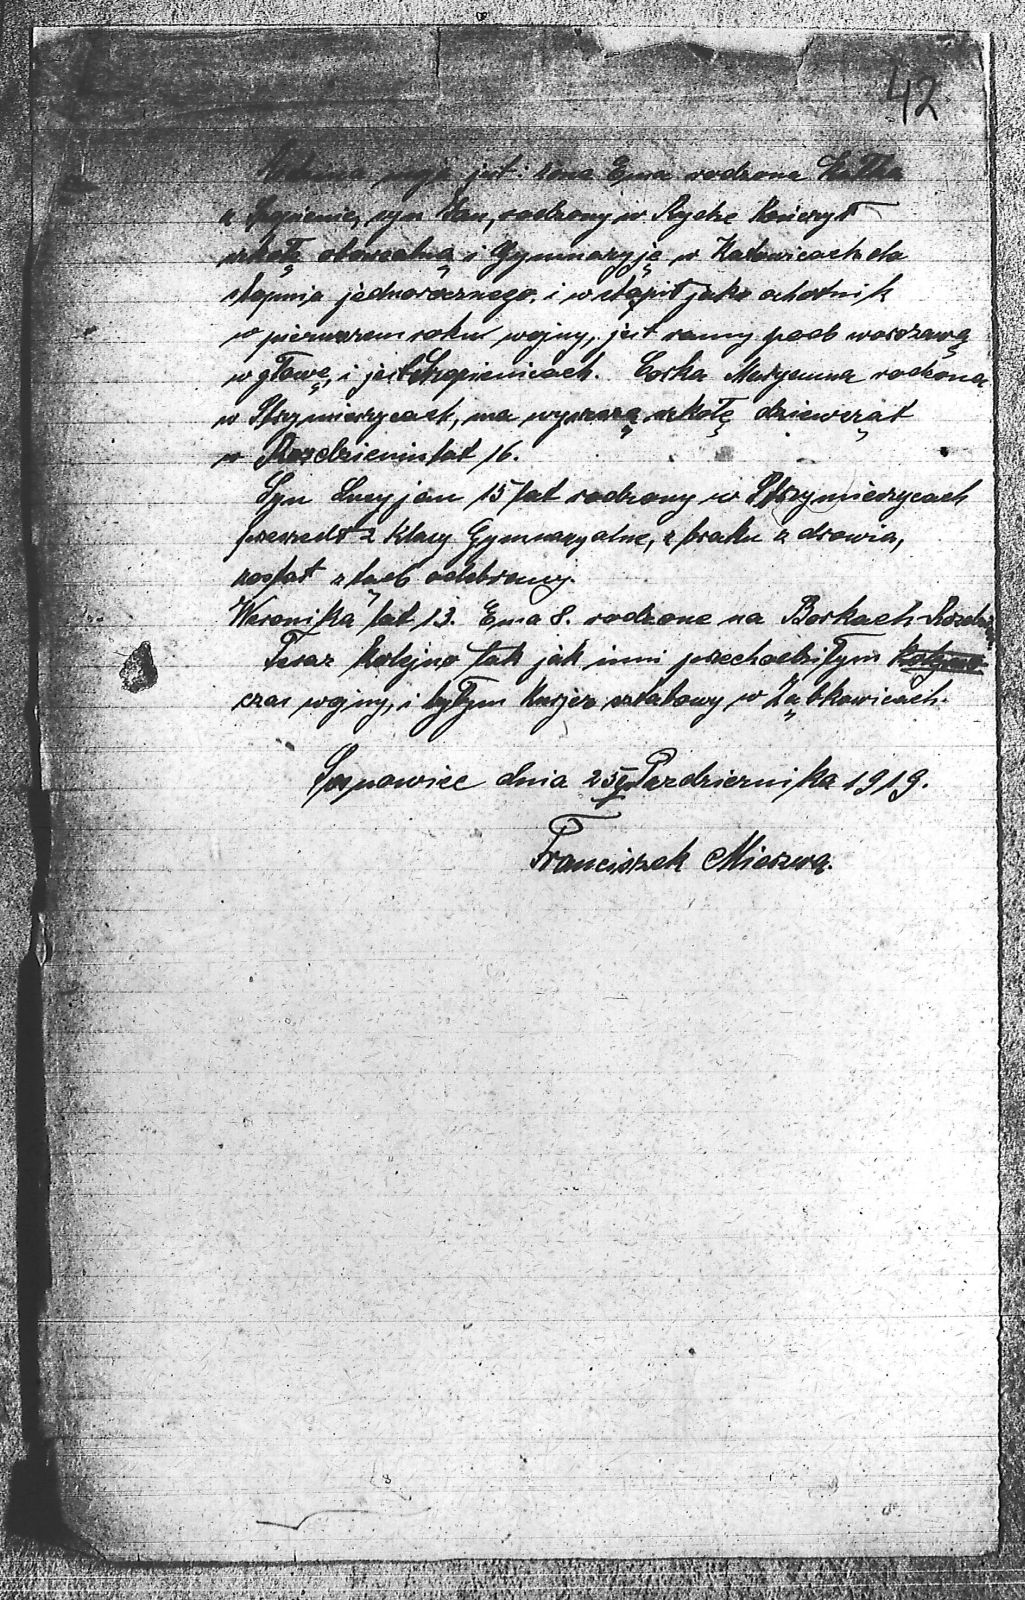 42
moja jest: żona Ema rodzona
syn Jan, rodzony w Rydze Kończył
szkołę obwodlną i Gymnazyję w Katowicach do
stopnia jednorocznego, i wstąpił jako ochotnik
w pierwszem roku wojny, jest ranny pod warszawą
w głowę, i jest Szopienicach. Corka Maryanna rodzona
w Strzymieszycach, ma wyszszą szkołę dziewcząt
w Rozdzieniu lat 16.
Syn Lucyjan 15 lat rodzony w Strzymieszycach
przeszedł 2 Klasy Gymnazyalne, z braku zdrowia,
zostat ztąd odebrany.
Weronika lat 13. Ema 8. rodzone na Borkach
Teraz Kolejno tak jak inni przechodziłym
czas wojny, i byłym Kurjer sztabowy w Ząbkowicach.
Sosnowiec dnia 25go Pazdziernika 1919.
Franciszek Mieszwą.